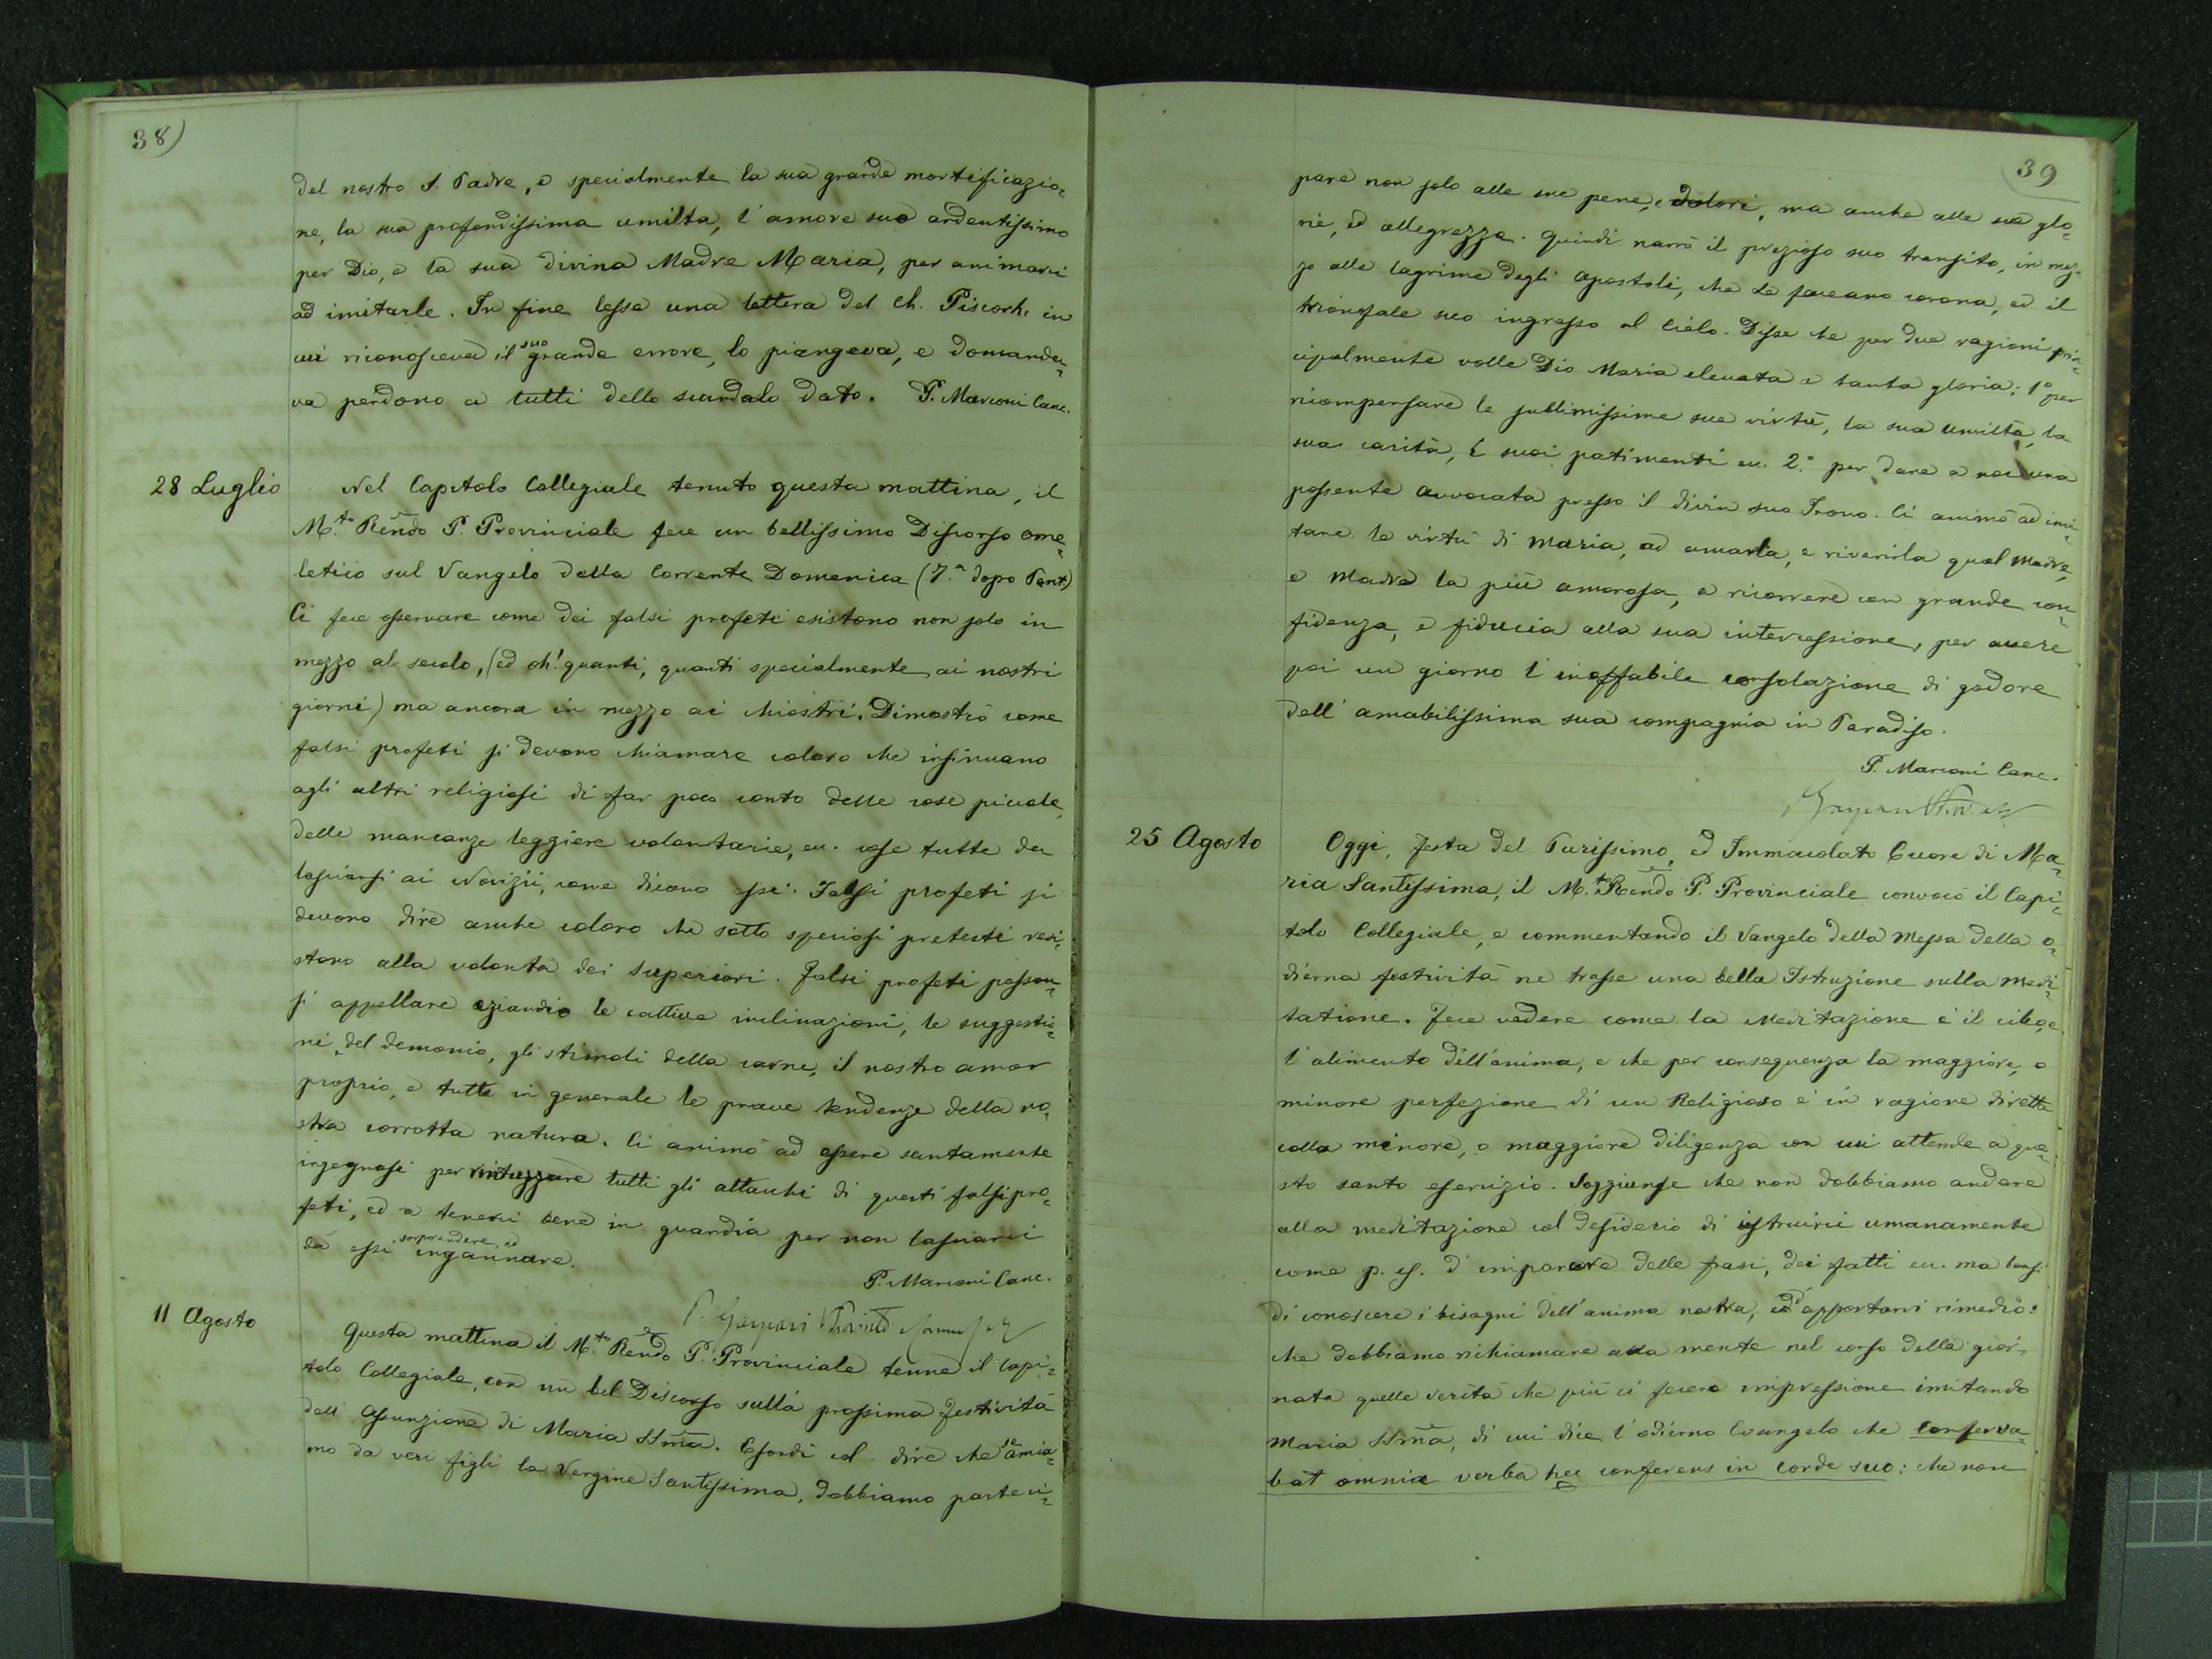 38)
del nostro S. Padre, e specialmente la sua grande mortificazio=
ne, la sua profondissima umiltà, l'amore suo ardentissimo
per Dio, e la sua divina Madre Maria, per animarci
ad imitarle. In fine lesse una lettera del Ch. in
cui riconosceva il suo grande errore, lo piangeva, e domanda=
va perdono a tutti dello scandalo dato. P. Marconi Canc.
28 Luglio
Nel Capitolo Collegiale tenuto questa mattina, il
M.to Rendo P. Provinciale fece un bellissimo Discorso ome=
letico sul Vangelo della corrente Domenica (7.a dopo Pent.)
Ci fece osservare come dei falsi profeti esistono non solo in
mezzo al secolo, (ed oh! quanti, quanti specialmente ai nostri
giorni) ma ancora in mezzo ai chiostri. Dimostrò come
falsi profeti si devono chiamare coloro che insinuano
agli altri religiosi di far poco conto delle cose piccole,
delle mancanze leggiere volontarie, ec. cose tutte da
lasciarsi ai Novizii, come dicono essi. Falsi profeti si
devono dire anche coloro che sotto speciosi pretesti resi=
stono alla volontà dei Superiori. Falsi profeti posson=
si appellare eziandio le cattive inclinazioni, le suggestio=
ni del demonio, gli stimoli della carne, il nostro amor
proprio, e tutte in generale le prave tendenze della no=
stra corrotta natura. Ci animò ad essere santamente
ingegnosi per rintuzzare tutti gli attacchi di questi falsi pro=
feti, ed a tenerci bene in guardia per non lasciarci
da essi sorprendere, ed ingannare.
P. Marconi Canc.
P. Gaspari Provinc
11 Agosto
Questa mattina il M.to Rendo P. Provinciale tenne il Capi=
tolo Collegiale, con un bel Discorso sulla prossima Festività
dell'Assunzione di Maria SSma. Esordì col dire che se amia=
mo da veri figli la Vergine Santissima, dobbiamo parteci=
39
pare non solo alle sue pene, e dolori, ma anche alle sue glo=
rie, ed allegrezza. Quindi narrò il prezioso suo transito, in mez=
zo alle lagrime degli Apostoli, che Le faceano corona, ed il
trionfale suo ingresso al Cielo. Disse che per due ragioni prin=
cipalmente volle Dio Maria elevata a tanta gloria: 1° per
ricompensare le sublimissime sue virtù, la sua umiltà, la
sua carità, i suoi patimenti ec. 2.° per dare a noi una
possente avvocata presso il divin suo Trono. Ci animò ad imi=
tare le virtù di Maria, ad amarla, e riverirla qual Madre,
e Madre la più amorosa, a ricorrere con grande con=
fidenza, e fiducia alla sua intercessione, per avere
poi un giorno l'ineffabile consolazione di godere
dell'amabilissima sua compagnia in Paradiso.
P. Marconi Canc.
25 Agosto
Oggi, Festa del Purissimo, ed Immacolato Cuore di Ma=
ria Santissima, il M.to Rendo P. Provinciale convocò il Capi=
tolo Collegiale, e commentando il Vangelo della Messa della o=
dierna festività ne trasse una bella Istruzione sulla Medi=
tatione. Fece vedere come la Meditazione è il cibo, e
l'alimento dell'anima, e che per conseguenza la maggiore, o
minore perfezione di un Religioso è in ragione diretta
colla minore, o maggiore diligenza con cui attende a que=
sto santo esercizio. Soggiunse che non dobbiamo andare
alla meditazione col desiderio di istruirci umanamente
come p. es. d'imparare delle frasi, dei fatti ec. ma bensì
di conoscere i bisogni dell'anima nostra, ed apportarvi rimedio:
che dobbiamo richiamare alla mente nel corso della gior=
nata quelle verità che più ci fecero impressione imitando
Maria SSma, di cui dice l'odierno Evangelo che conserva=
bat omnia verba hec conferens in corde suo: che non